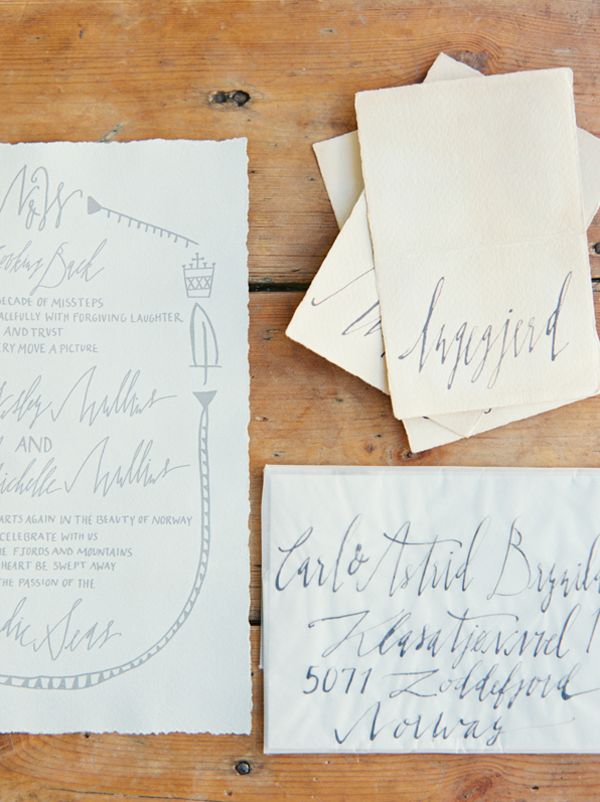 N&W
Looking Back
DECADE OF MISSTEPS
ACEFULLY WITH FORGIVING LAUGHTER
AND TRUST
ERY MOVE A PICTURE
Mullins
AND
ichelle Mullins
ARTS AGAIN IN THE BEAUTY OF NORWAY
CELEBRATE WITH US
E FJORDS AND MOUNTAINS
HEART BE SWEPT AWAY
THE PASSION OF THE
dic Seas
Ingegjerd
Carl & Astrid
5071 Loddefjord
Norway